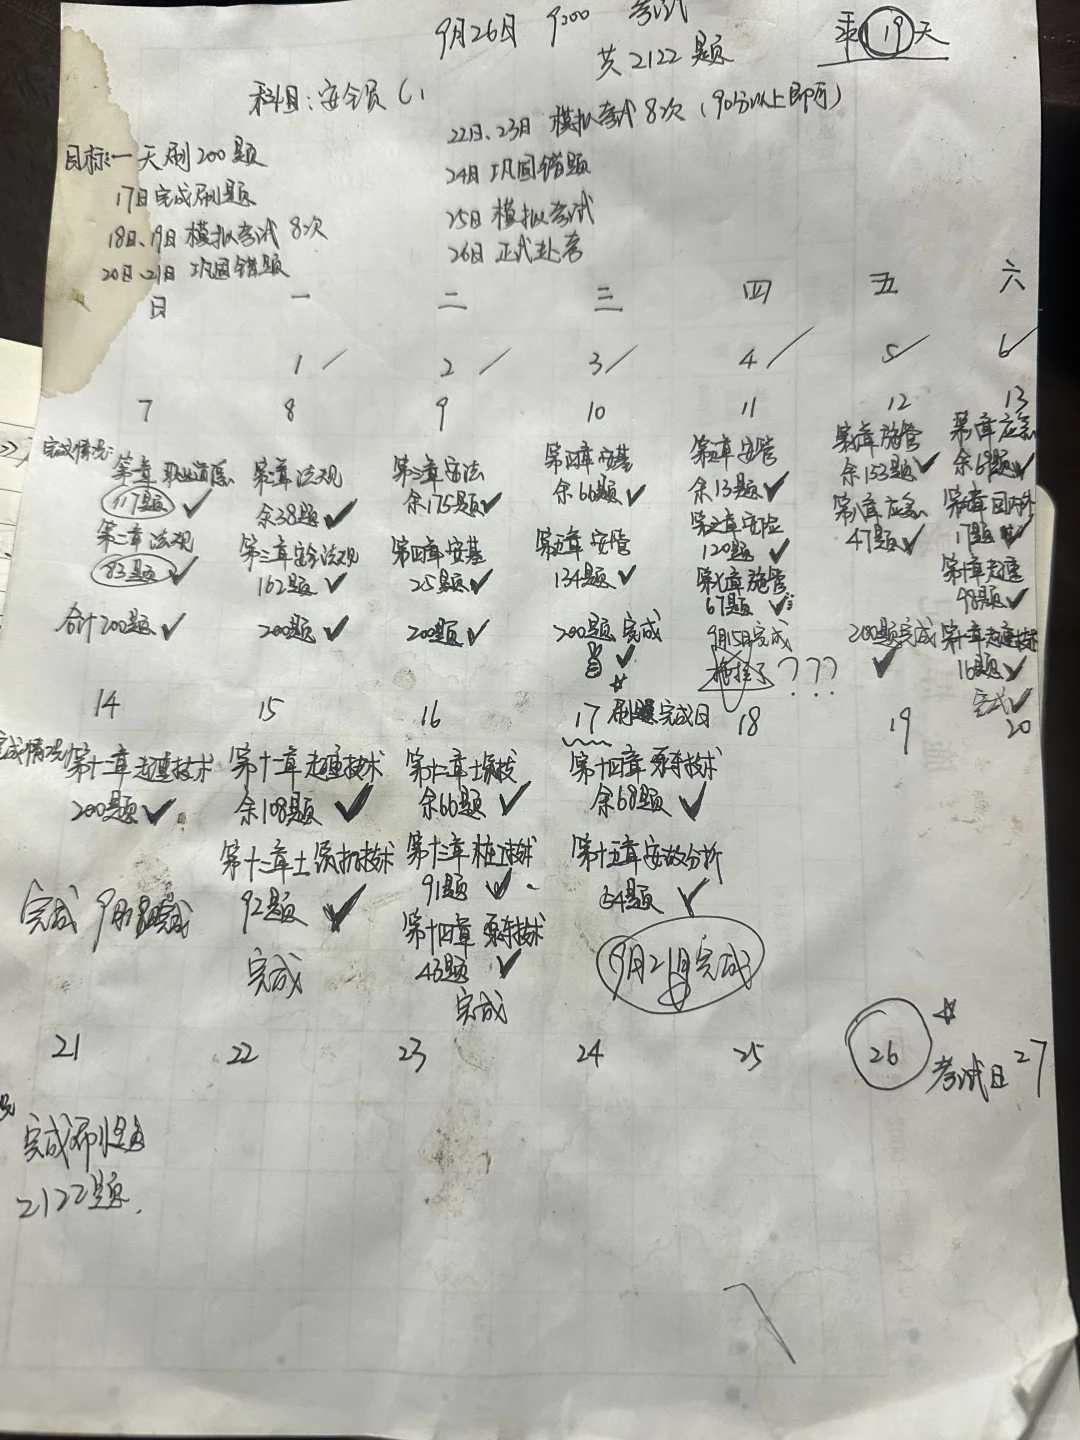 9月26日 9:00 考试
共2122题
剩19天
科目:安全员C1
目标:一天刷200题
17日完成刷题
18日、19日 模拟考试 8次
20日、21日 巩固错题
22日、23日 模拟考试 8次(90分以上即可)
24日 巩固错题
25日 模拟考试
26日 正式赴考
日 一 二 三 四 五 六
1 2 3 4 5 6
7 8 9 10 11 12 13
完成情况:
第一章 职业道德
117题
第二章 法规
83题
合计200题
第二章 法规
余38题
第三章 安全法规
162题
200题
第三章 安法
余175题
第四章 安基
25题
200题
第四章 安基
余66题
第五章 安管
134题
200题 完成
第五章 安管
余13题
第六章 安检
120题
第七章 施管
67题
9月15日完成
???
第七章 施管
余153题
第八章 应急
47题
200题完成
第八章 应急
余69题
17题
98题
16题
完成
14 15 16 17 刷题完成日 18 19 20
完成情况
第十一章 起重技术
200题
完成
第十一章 起重技术
余108题
第十二章 土
92题
完成
第十二章
余66题
第十三章 桩工技术
91题
第十四章 泵车技术
43题
完成
第十四章 泵车技术
余68题
第十五章 安故分析
54题
9月21日完成
21 22 23 24 25 26 考试日 27
完成刷题
2122题.